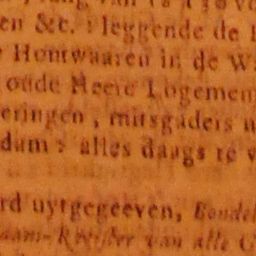 en &c. : leggende de
Houtwaaren in de W
oude Heere Logemen
eringen, mitsgaders
dam : alles daags te v
rd uytgegeeven, Bondel
aam-Register van alle G